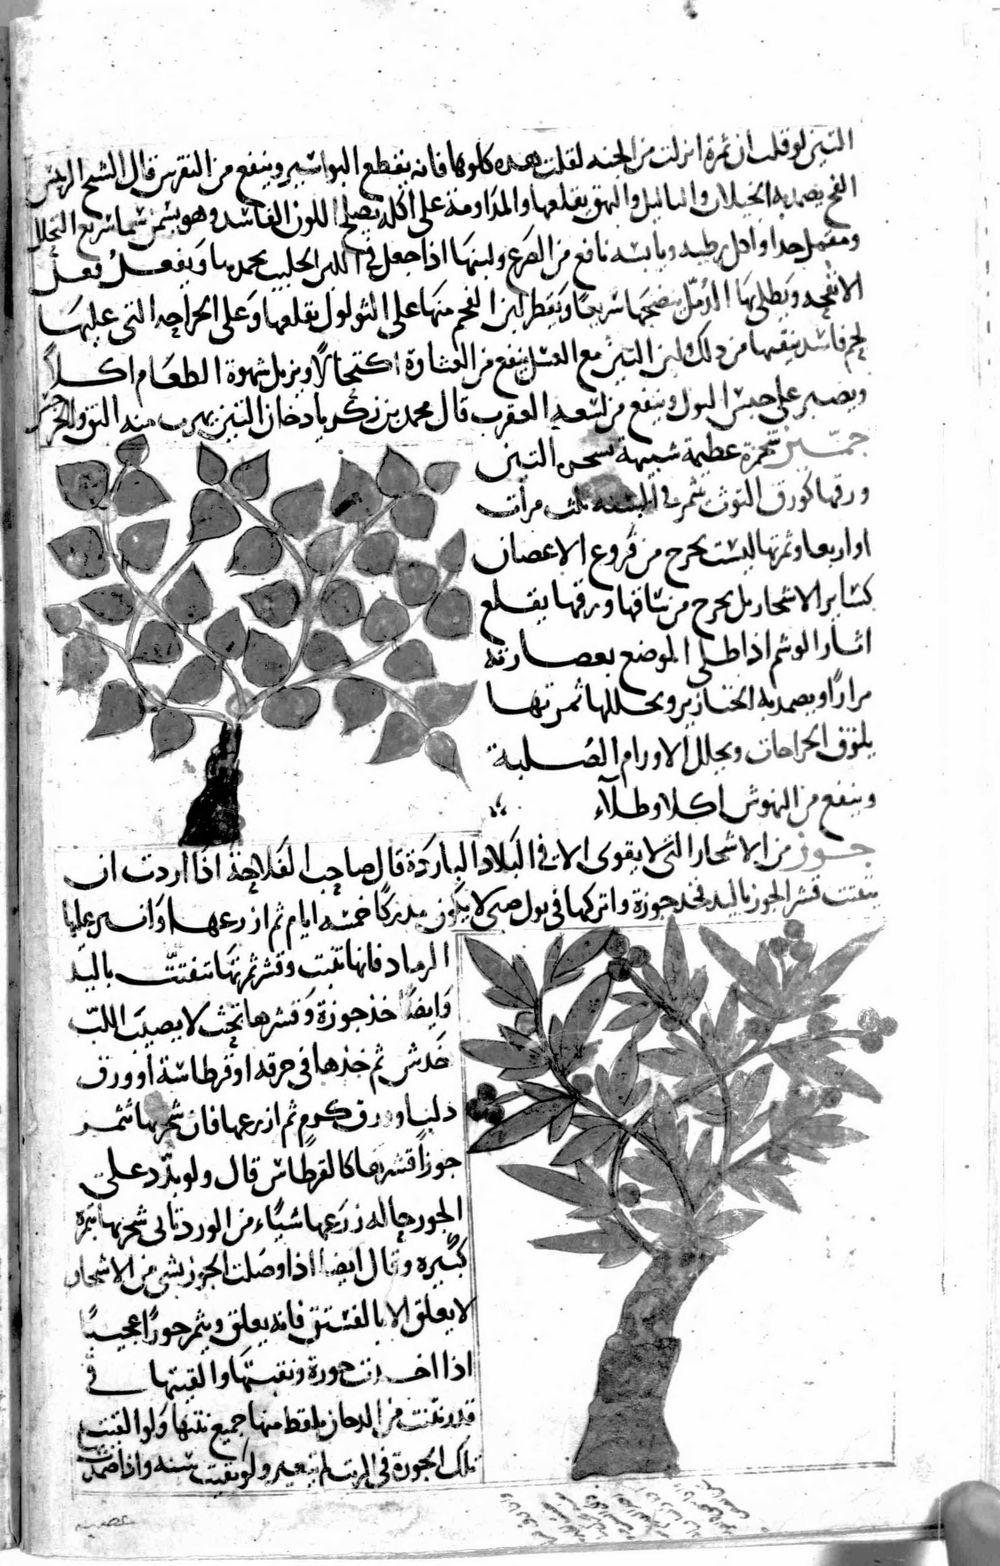 التين لو قلت ان ثمرة انزلت من الجنه لقلت هذه كلوها فانه يقطع البواسير وينفع من النقرس قال الشيخ الرئيس
الفج يضمد به الخيلان والثاليل والبهق يقلعها والمداومة على اكله يصلح اللون الفاسد وهو يسمن سمنا سريع التحلل
ومقمل جدا واكل رطبه ويابسه نافع من الصرع ولبنها اذا جعل في اللبن الحليب يجمدها ويفعل فعل
الانفحه ويطلى بها الدمل ينضجها سريعا ويقطر لبن الفج منها على الثولول يقلعها وعلى الجراحه التى عليها
لحم فاسد ينقيها من ذلك لبن التين مع العسل ينفع من الغشاوة اكتحالا ويزيل شهوة الطعام اكلا
ويصبر على حبس البول وينفع من لسعه العقرب قال محمد بن زكريا دخان التين يهرب منه البق والجرجس
جميز شجرة عظيمة شبيهة بشجرة التين
ورقها كورق التوث تثمر في السنه ثلث مرات
او اربعا وثمرتها ليست تخرج من فروع الاغصان
كساير الاشجار بل يخرج من ساقها ورقها يقلع
اثار الوشم اذا طلى الموضع بعصارته
مرارا ويضمد به الخنازير ويحللها ثمرتها
يلزق الجراحات ويحلل الاورام الصلبة
وينفع من النهوش اكلا وطلاء
جوز من الاشجار التى لا يقوى الا في البلاد الباردة قال صاحب الفلاحة اذا اردت ان
تتفتت قشر الجوز باليد فخذ جوزة واتركها في بول صبى لا يكون مدركا خمسه ايام ثم ازرعها وانثر عليها
الرماد فانها تنبت وقشر ثمرتها تتفتت باليد
وايضا خذ جوزة وقشرها بحيث لا يصيب اللب
خدش ثم خذها في خرقه او قرطاسة او ورق
دلب او ورق كرم ثم ازرعها فان شجرتها تثمر
جوزا قشرها كالقرطاس قال ولو بدد على
الجوز حالة زرعها شيا من الورد تاتى شجرتها بثمرة
كبيره وقال ايضا اذا وصلت الجوز بشى من الاشجار
لا يعلق الا بالفستق فانه يعلق ويثمر جوزا عجيبا
اذا اخذت جوزة ونقبتها والقيتها في
قدر نتنت من اللحم يلقط منها جميع نتنها ولو القيت
تلك الجوزة في الزيت لم يتغير ولو بقيت سنه واذا ضمدت بها